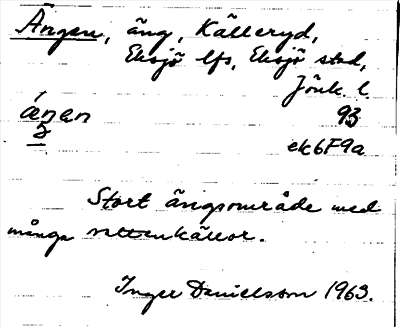 Ängen, äng, Källeryd,
Eksjö lfs, Eksjö stad,
Jönk. l.
áŋan 93
2 ek6F9a
Stort ängsområde med
många vattenkällor.
Inger Danielsson 1963.